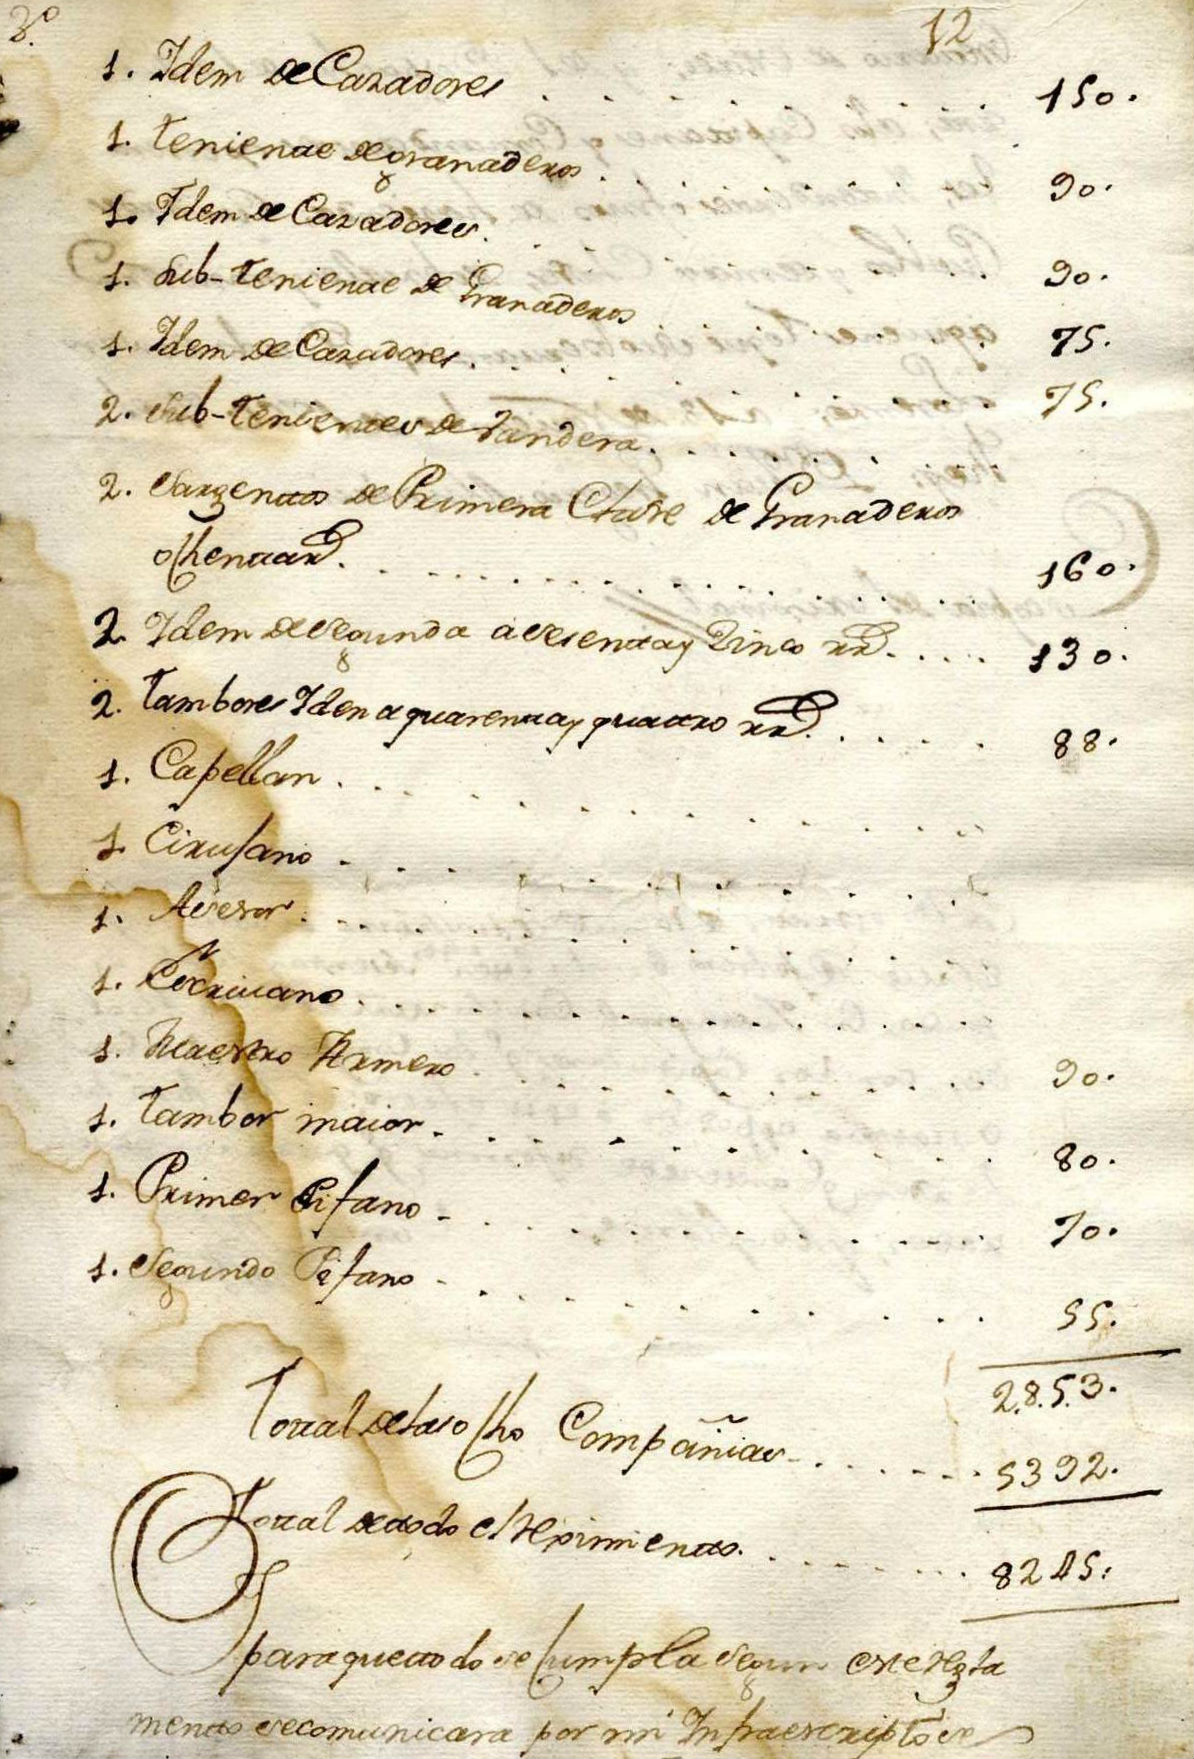 3º 12
1. Idem de Cazadores 150.
1. teniente de granaderos 90.
1. Idem de Cazadores 90.
1. Sub-teniente de Granaderos 75.
1. Idem de Cazadores 75.
2. Sub-tenientes de Vandera
2. Sargentos de Primera Clase de Granaderos
ochenta rrs. 160.
2. Idem de segunda a sesenta y Sinco rrs. 130.
2. tambores Iden a quarenta y quatro rrs. 88.
1. Capellan
1. Cirujano
1. Asesor
1. Escrivano
1. Maestro Armero 90.
1. tambor maior 80.
1. Primer Pifano 70.
1. Segundo Pifano 55.
2.8.5.3.
Total de las ocho Compañias 5392.
Total de todo el Regimiento 8245.
Y para que todo se Cumpla segun este Regla
mento se comunicara por mi Infraescripto